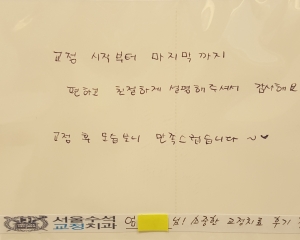 교정 시작부터 마지막까지
편하고 친절하게 설명해주셔서 감사해요
교정 후 모습보니 만족스럽습니다 ~♥
서울수석
교정치과
엄 님! 소중한 교정치료 후기